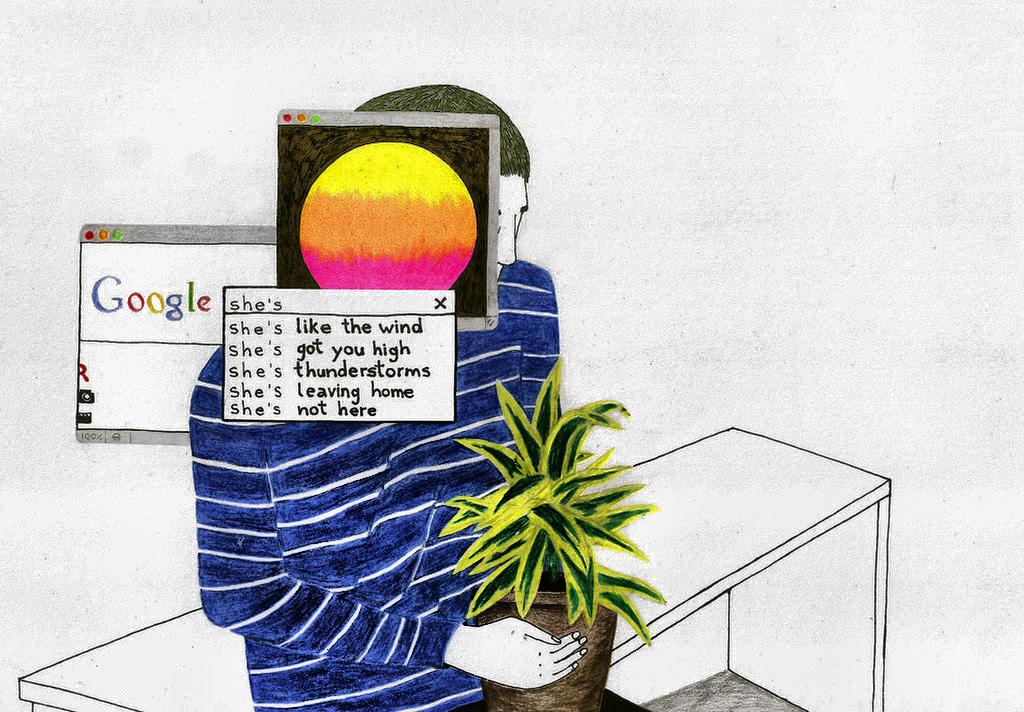 Google
R
100%
she's
she's like the wind
she's got you high
she's thunderstorms
she's leaving home
she's not here